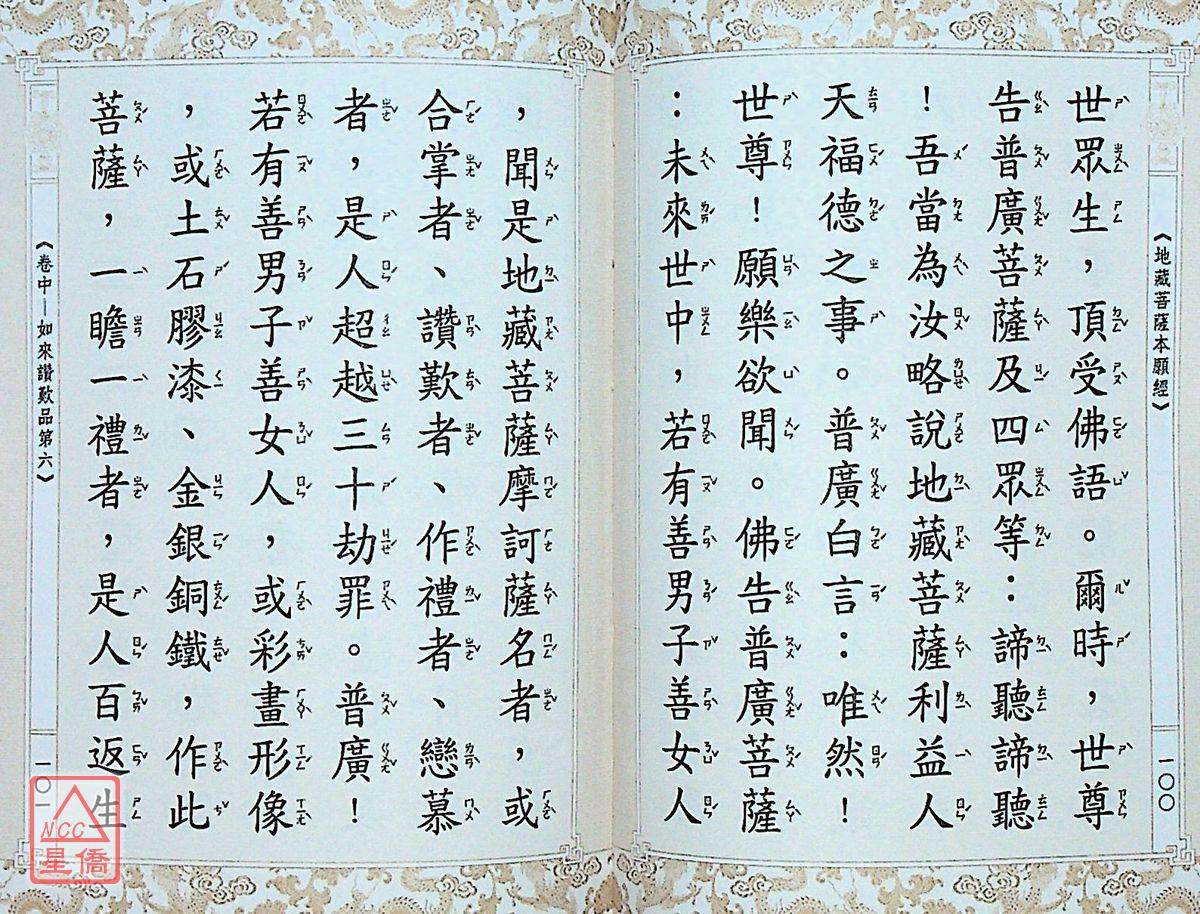 《地藏菩薩本願經》
一〇〇
世眾生，頂受佛語。爾時，世尊
告普廣菩薩及四眾等：諦聽諦聽
！吾當為汝略說地藏菩薩利益人
天福德之事。普廣白言：唯然！
世尊！願樂欲聞。佛告普廣菩薩
：未來世中，若有善男子善女人
，聞是地藏菩薩摩訶薩名者，或
合掌者、讚歎者、作禮者、戀慕
者，是人超越三十劫罪。普廣！
若有善男子善女人，或彩畫形像
，或土石膠漆、金銀銅鐵，作此
菩薩，一瞻一禮者，是人百返生
《卷中－如來讚歎品第六》
一〇一
NCC
星僑